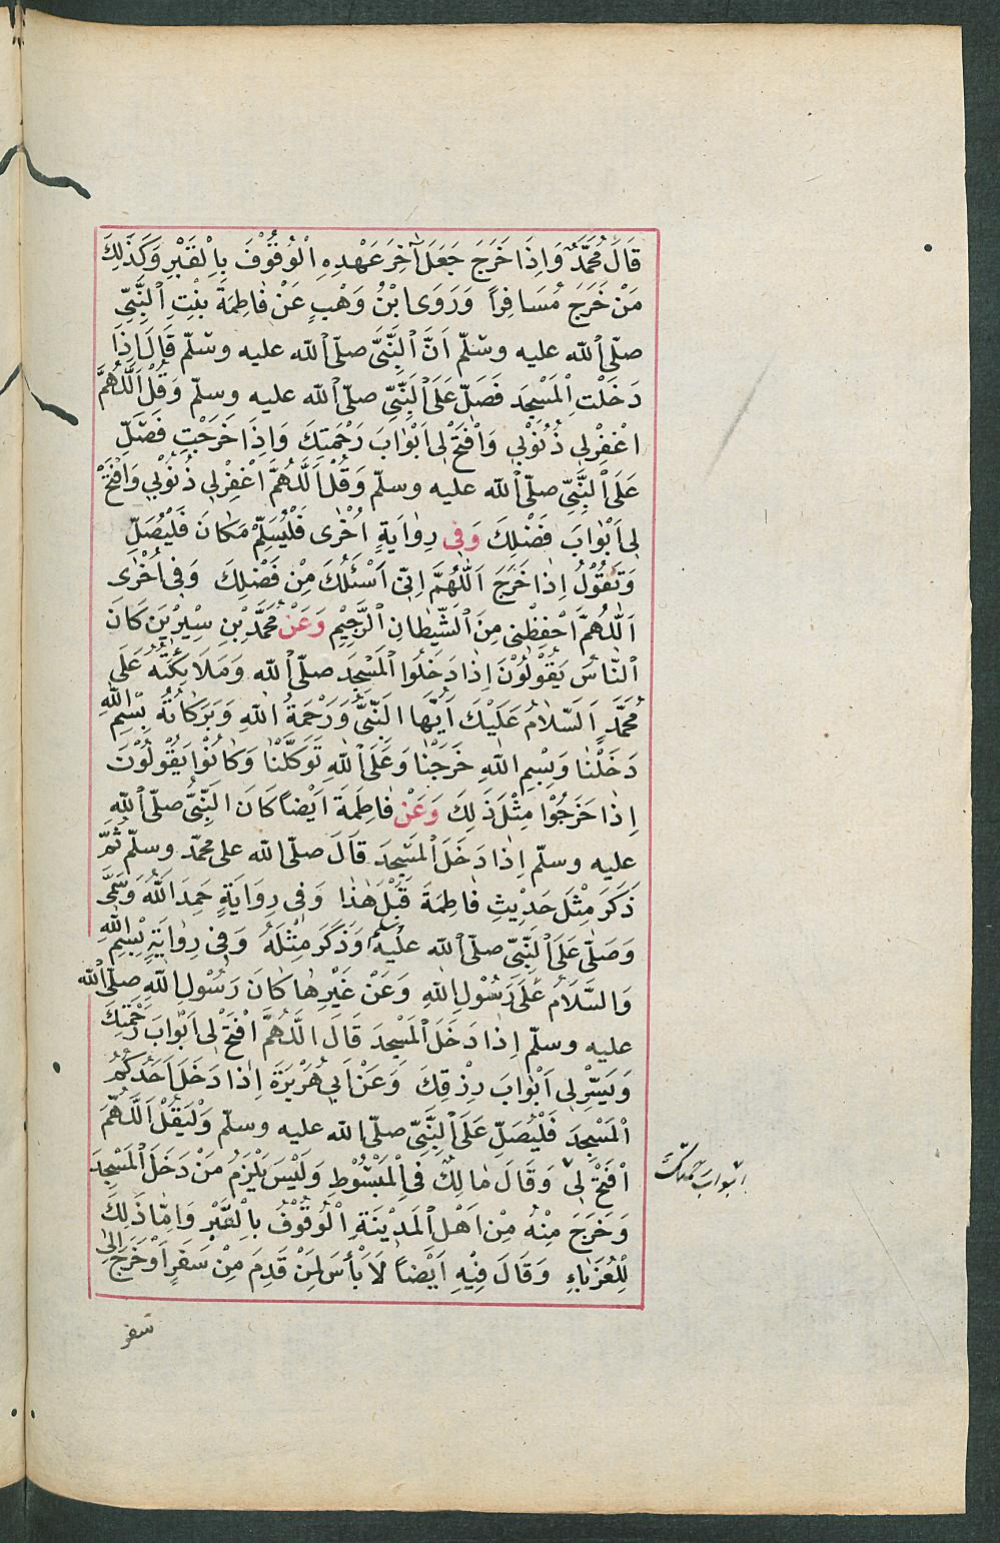 قَالَ مُحَمَّدٌ وَاِذَا خَرَجَ جَعَلَ آخِرَ عَهْدِهِ الْوُقُوْفَ بِالْقَبْرِ وَكَذٰلِكَ
مَنْ خَرَجَ مُسَافِراً وَرَوَى ابْنُ وَهْبٍ عَنْ فَاطِمَةَ بِنْتِ النَّبِىِّ
صلّى الله عليه وسّلم اَنَّ النَّبِىَّ صلّى الله عليه وسّلم قَالَ اِذَا
دَخَلْتِ الْمَسْجِدَ فَصَلِّ عَلَى النَّبِىِّ صلّى الله عليه وسلّم وَقُلْ اَللّٰهُمَّ
اغْفِرْلِى ذُنُوْبِى وَافْتَحْ لِى اَبْوَابَ رَحْمَتِكَ وَاِذَا خَرَجْتِ فَصَلِّ
عَلَى النَّبِىِّ صلّى الله عليه وسلّم وَقُلْ اَللّٰهُمَّ اغْفِرْلِى ذُنُوْبِى وَافْتَحْ
لِى اَبْوَابَ فَضْلِكَ وَفِى رِوَايَةٍ اُخْرٰى فَلْيُسَلِّمْ مَكَانَ فَلْيُصَلِّ
وَتَقُوْلُ اِذَا خَرَجَ اَللّٰهُمَّ اِنِّى اَسْئَلُكَ مِنْ فَضْلِكَ وَفِى اُخْرٰى
اَللّٰهُمَّ احْفِظْنِى مِنَ الشَّيْطَانِ الرَّجِيْمِ وَعَنْ مُحَمَّدِ بْنِ سِيْرِيْنَ كَانَ
النَّاسُ يَقُوْلُوْنَ اِذَا دَخَلُوا الْمَسْجِدَ صلّى الله وَمَلَائِكَتُهُ عَلَى
مُحَمَّدٍ اَلسَّلَامُ عَلَيْكَ اَيُّهَا النَّبِىُّ وَرَحْمَةُ اللهِ وَبَرَكَاتُهُ بِسْمِ اللهِ
دَخَلْنَا وَبِسْمِ اللهِ خَرَجْنَا وَعَلَى اللهِ تَوَكَّلْنَا وَكَانُوْا يَقُوْلُوْنَ
اِذَا خَرَجُوْا مِثْلَ ذَلِكَ وَعَنْ فَاطِمَةَ اَيْضاً كَانَ النَّبِىُّ صلّى الله
عليه وسلّم اِذَا دَخَلَ الْمَسْجِدَ قَالَ صلّى الله على محمّد وسلّم ثُمَّ
ذَكَرَ مِثْلَ حَدِيْثِ فَاطِمَةَ قَبْلَ هٰذَا وَفِى رِوَايَةٍ حَمِدَ اللهَ وَسَمَّى
وَصَلَّى عَلَى النَّبِىِّ صلّى الله عليه وسلم وَذَكَرَ مِثْلَهُ وَفِى رِوَايَةٍ بِسْمِ اللهِ
وَالسَّلَامُ عَلَى رَسُوْلِ اللهِ وَعَنْ غَيْرِهَا كَانَ رَسُوْلُ اللهِ صلّى الله
عليه وسلّم اِذَا دَخَلَ الْمَسْجِدَ قَالَ اللّٰهُمَّ افْتَحْ لِى اَبْوَابَ رَحْمَتِكَ
وَيَسِّرْ لِى اَبْوَابَ رِزْقِكَ وَعَنْ اَبِى هُرَيْرَةَ اِذَا دَخَلَ اَحَدُكُمُ
الْمَسْجِدَ فَلْيُصَلِّ عَلَى النَّبِىِّ صلّى الله عليه وسلّم وَلْيَقُلْ اَللّٰهُمَّ
افْتَحْ لِى وَقَالَ مَالِكٌ فِى الْمَبْسُوْطِ وَلَيْسَ يَلْزَمُ مَنْ دَخَلَ الْمَسْجِدَ
ابواب رحمتك
وَخَرَجَ مِنْهُ مِنْ اَهْلِ الْمَدِيْنَةِ الْوُقُوْفُ بِالْقَبْرِ وَاِمَّا ذٰلِكَ
لِلْغُرَبَاءِ وَقَالَ فِيْهِ اَيْضاً لَا بَأْسَ لِمَنْ قَدِمَ مِنْ سَفَرٍ اَوْ خَرَجَ اِلَى
سفر